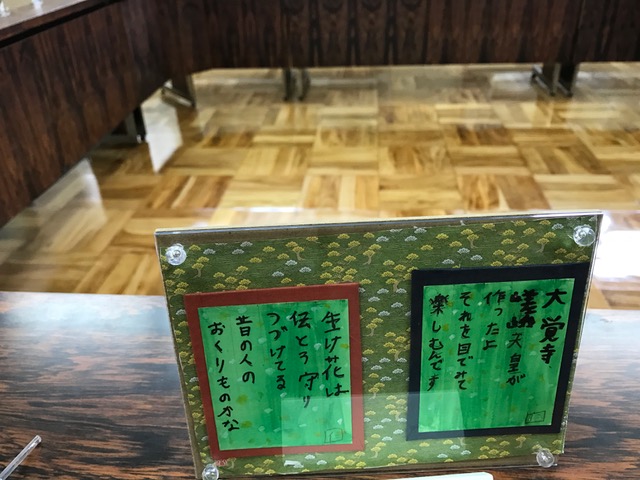 大覚寺
嵯峨天皇が
作ったよ
それを目でみて
楽しむんです
生け花は
伝とう守り
つづけてる
昔の人の
おくりものかな